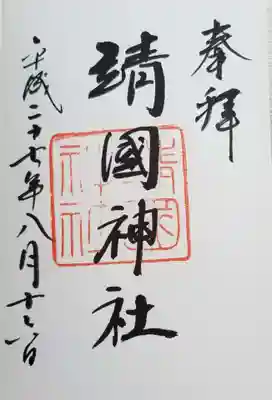 奉拝
靖國神社
平成二十七年八月十六日
靖國神社